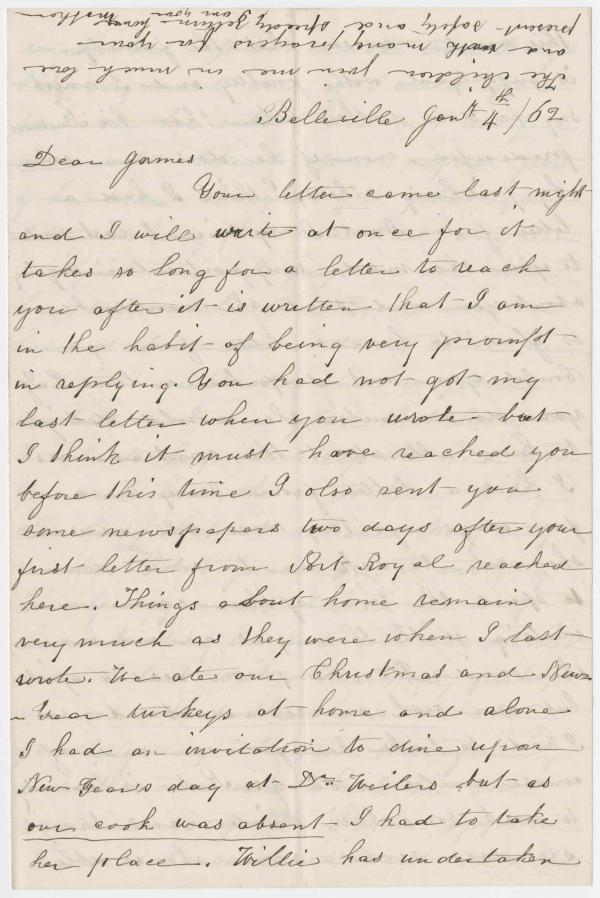 The children join me in much love
and with many prayers for your
present safety and speedy return
I am your
Mother
Belleville Jany 4th/62
Dear James
Your letter came last night
and I will write at once for it
takes so long for a letter to reach
you after it is written that I am
in the habit of being very prompt
in replying. You had not got my
last letter when you wrote but
I think it must have reached you
before this time I also sent you
some newspapers two days after your
first letter from Port Royal reached
here. Things about home remain
very much as they were when I last
wrote. We ate our Christmas and New-
-Year turkeys at home and alone
I had an invitation to dine upon
New Year's day at Dr. Weilers but as
our cook was absent I had to take
her place. Willie has undertaken